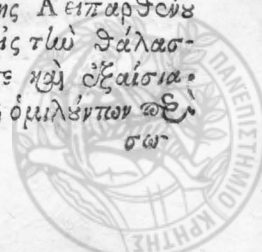 της Αειπαρθένου
εἰς τὴν θάλασ-
τε καὶ ἐξαίσια.
ὁμιλούντων περὶ
σω-
ΠΑΝΕΠΙΣΤΗΜΙΟ ΚΡΗΤΗΣ